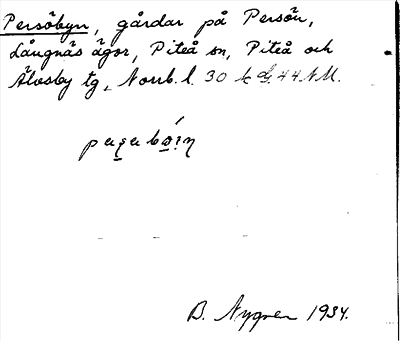 Persöbyn, gårdar på Persön,
Långnäs ägor, Piteå sn, Piteå och
Älvsby tg, Norrb. l. 30 k 44 NM.
B. Nygren 1934.